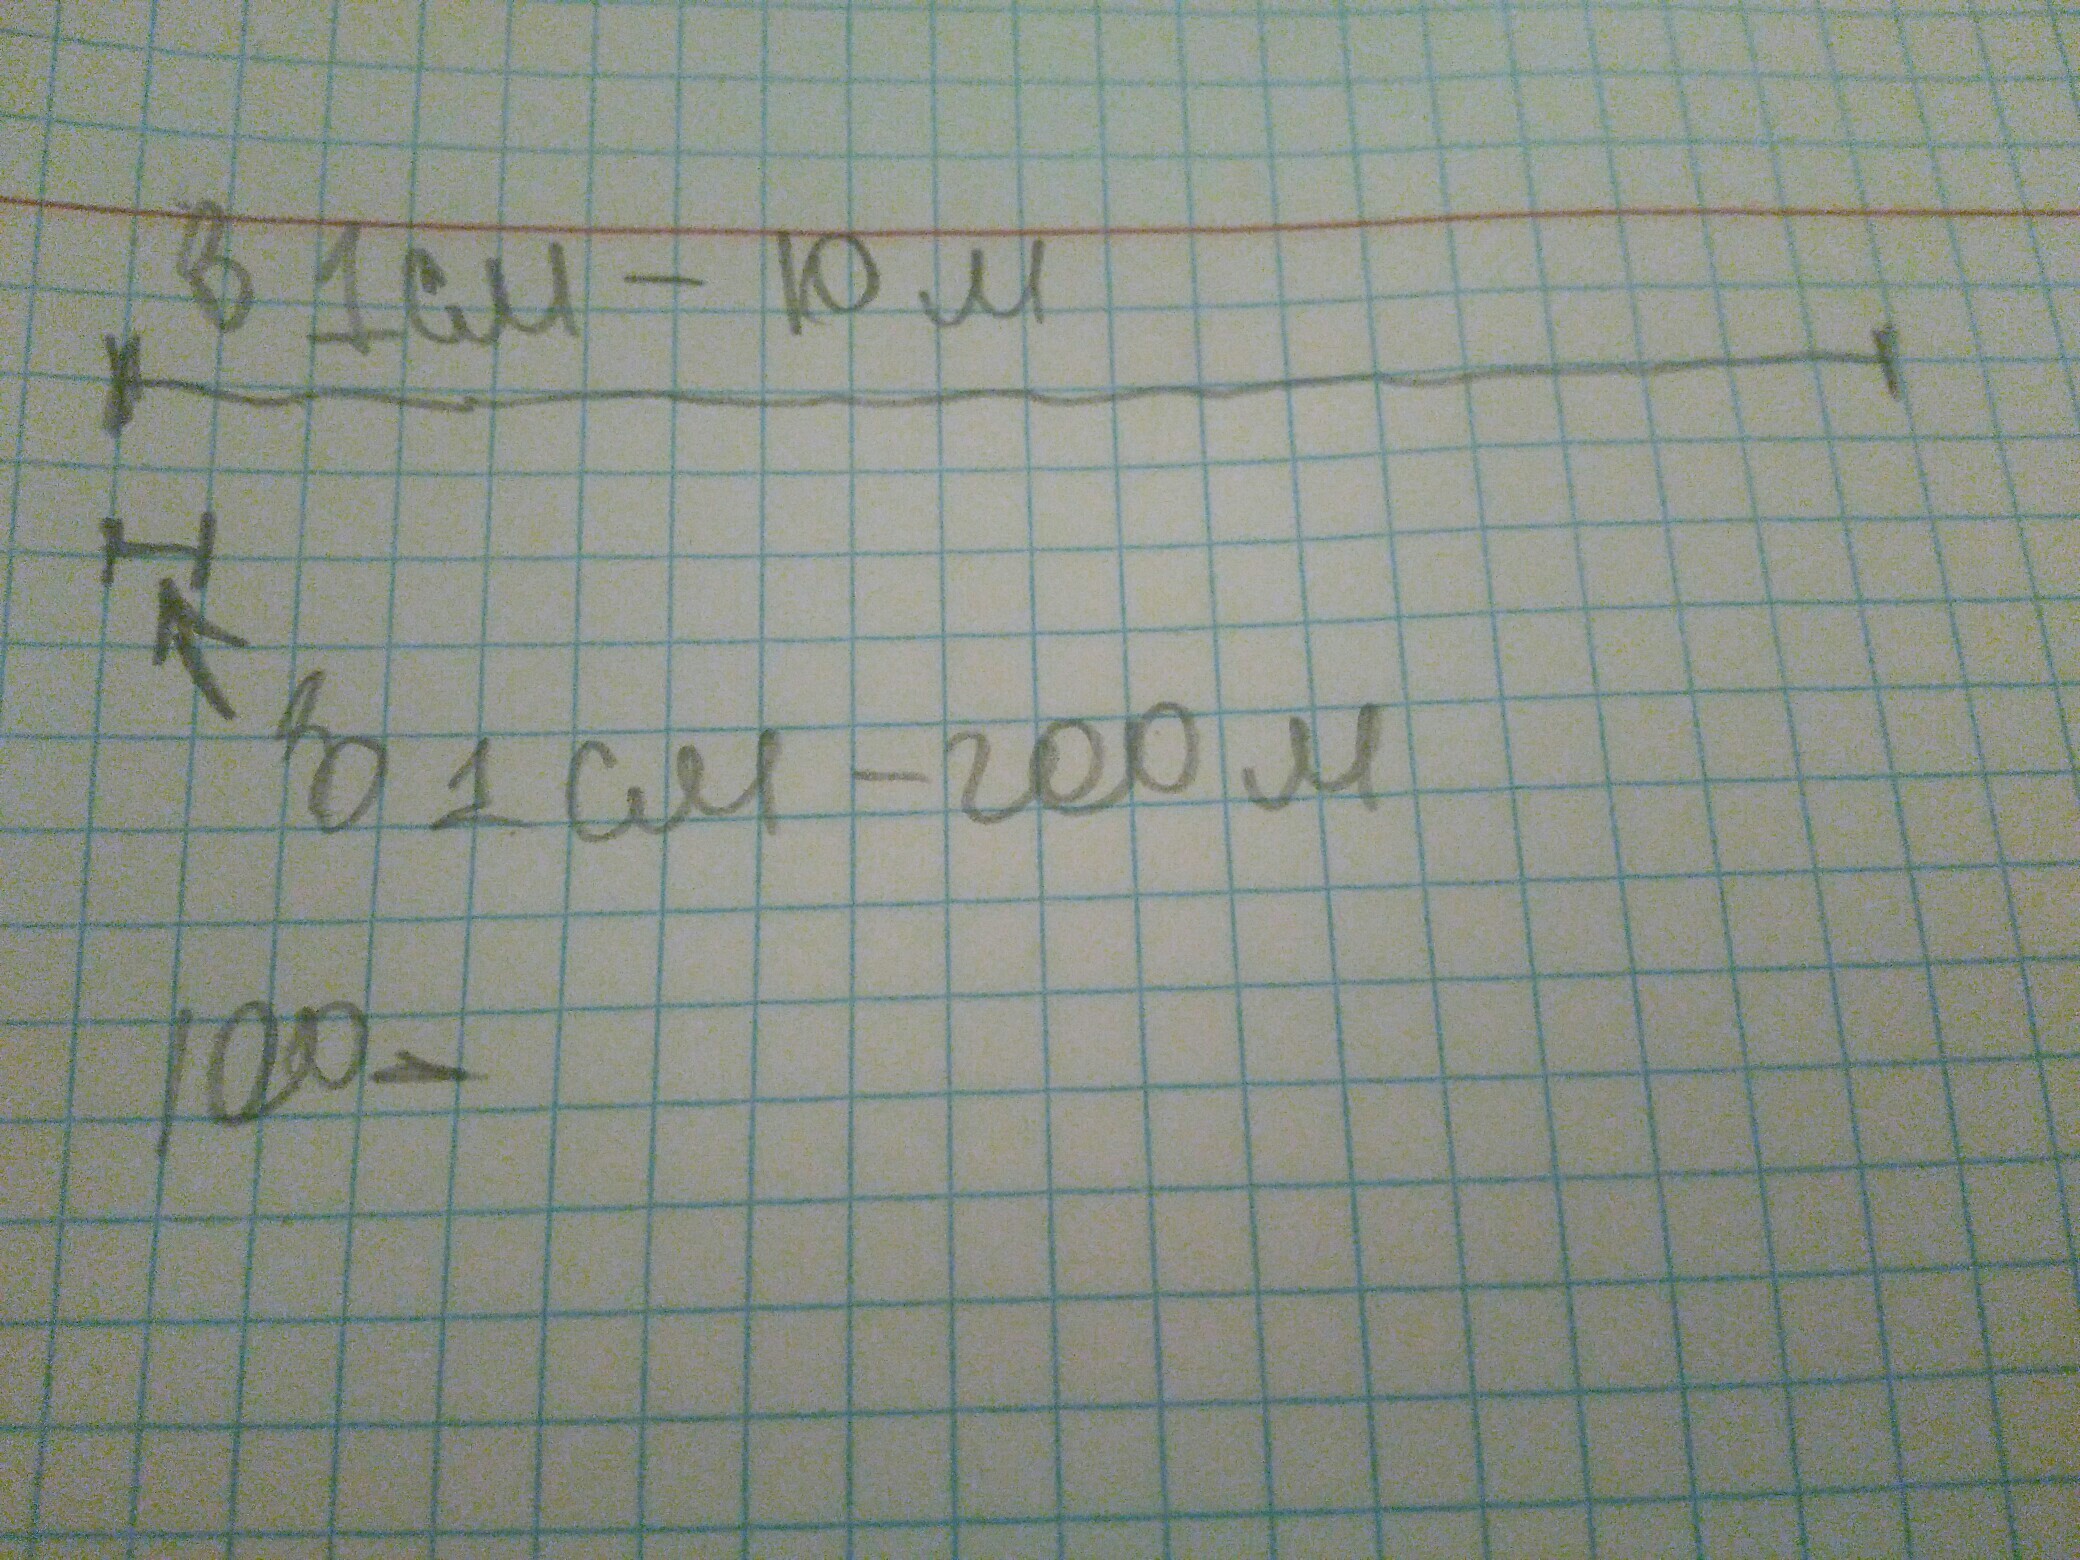 В 1 см - 10 м
В 1 см - 200 м
100 -